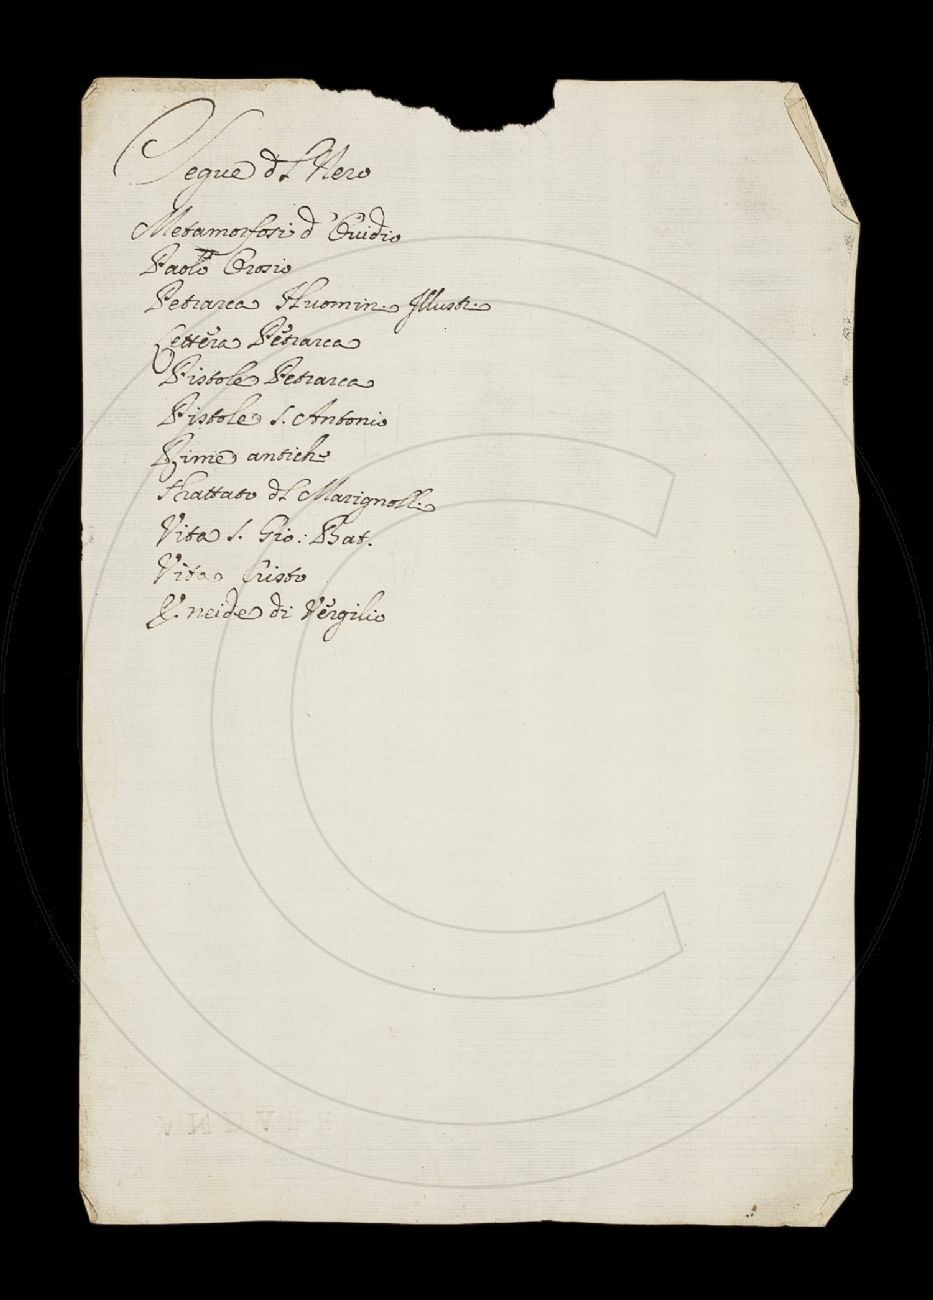 Segue dl Nero
Metamorfosi d'Ovidio
Paolo Orosio
Petrarca Huomin. Illustr.
Lettera Petrarca
Pistole Petrarca
Pistole S. Antonio
Rime antiche
Trattato dl Marignoll.
Vita S. Gio: Bat.
Vita Cristo
Eneide di Vergilio